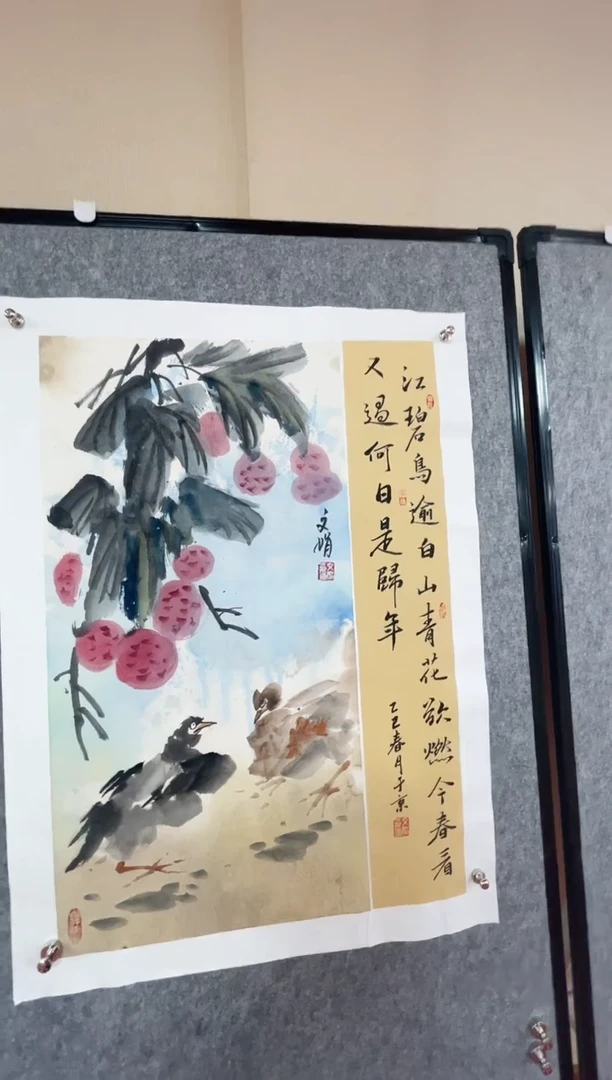 江碧鳥逾白山青花欲燃今春看
又過何日是歸年
乙巳春月于京
文娟